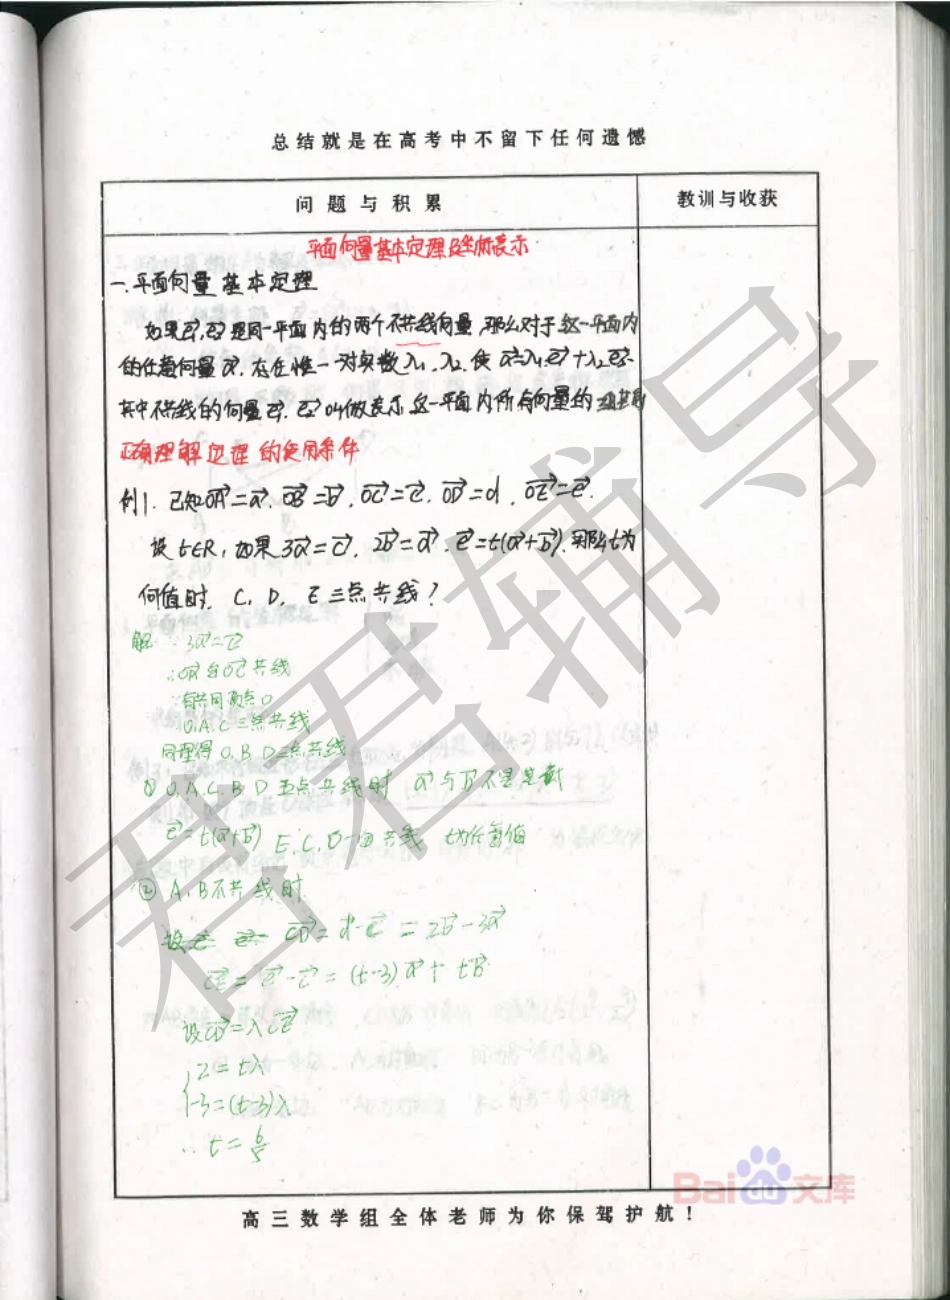 总结就是在高考中不留下任何遗憾
问题与积累
教训与收获
平面向量基本定理及坐标表示
一.平面向量基本定理
如果e₁,e₂是同一平面内的两个不共线向量,那么对于这一平面内
的任意向量a,存在惟一一对实数λ₁,λ₂,使a=λ₁e₁+λ₂e₂.
其中不共线的向量e₁,e₂叫做表示这一平面内所有向量的一组基底
正确理解定理的使用条件
例1.已知OA=a,OB=b,OC=c,OD=d,OE=e.
设t∈R,如果3a=c,2b=d,e=t(a+b),那么t为
何值时,C,D,E三点共线?
解:∵3a=c
∴OA与OC共线
∵有共同顶点O
O.A.C三点共线
同理得O.B.D三点共线
① O,A,C,B,D五点共线时 a与b不是基底
e=t(a+b) E.C.D一向共线 t为任意值
② A,B不共线时
CD=d-c=2b-3a
CE=e-c=(t-3)a+tb
设CD=λCE
2=tλ
-3=(t-3)λ
∴t=6/5
高三数学组全体老师为你保驾护航!
君君辅导
Bai du 文库